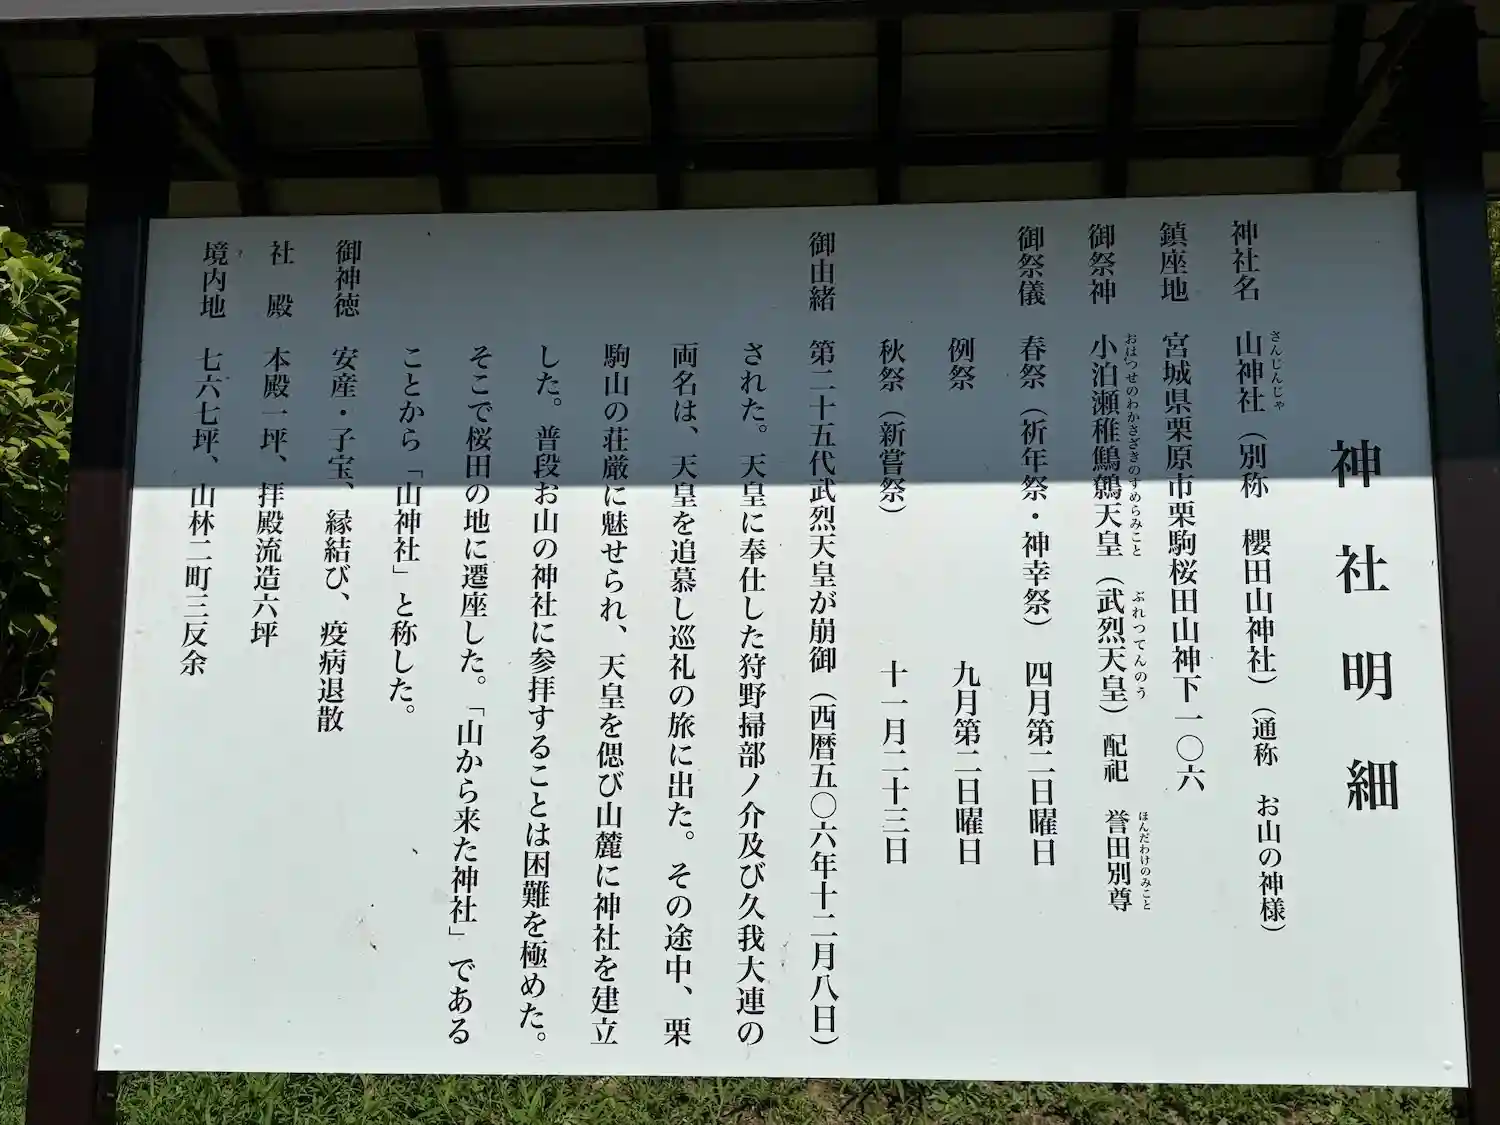 神社明細
神社名　山神社（別称　櫻田山神社）（通称　お山の神様）
さんじんじゃ
鎮座地　宮城県栗原市栗駒桜田山神下一〇六
御祭神　小泊瀬稚鷦鷯天皇（武烈天皇）配祀　誉田別尊
おはつせのわかさざきのすめらみこと　ぶれつてんのう　ほんだわけのみこと
御祭儀　春祭（祈年祭・神幸祭）　四月第二日曜日
例祭　九月第二日曜日
秋祭（新嘗祭）　十一月二十三日
御由緒　第二十五代武烈天皇が崩御（西暦五〇六年十二月八日）
された。天皇に奉仕した狩野掃部ノ介及び久我大連の
両名は、天皇を追慕し巡礼の旅に出た。その途中、栗
駒山の荘厳に魅せられ、天皇を偲び山麓に神社を建立
した。普段お山の神社に参拝することは困難を極めた。
そこで桜田の地に遷座した。「山から来た神社」である
ことから「山神社」と称した。
御神徳　安産・子宝、縁結び、疫病退散
社　殿　本殿一坪、拝殿流造六坪
境内地　七六七坪、山林二町三反余